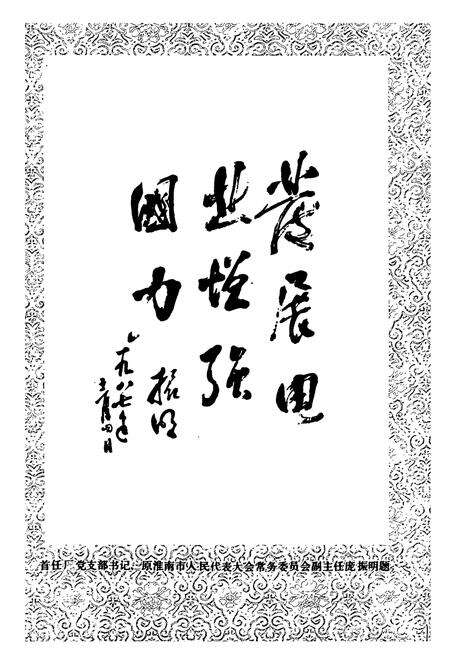 發展电
业增强
國力
振明
一九八七年
月四日
首任厂 党支部书记、原淮南市人民代表大会常务委员会副主任庞振明题。